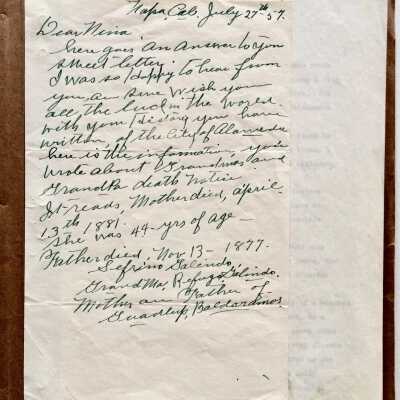 Napa, Cal. July 27th 57.
Dear Nina
here goes an answer to you
sweet letter.
I was so happy to hear from
you, an sure wish you
all the luck in the world.
with your history you have
written, of the City of Alameda
here is the information, you
wrote about Grandma's and
Grandpa death notice
It reads Mother died, April-
13th 1881.
She was 44 yrs of age—
Father died, Nov 13 - 1877.
Sefrino Galindo,
Grand Ma, Refugo Galindo.
Mother an Father of
Guadlup, Baldaramos.